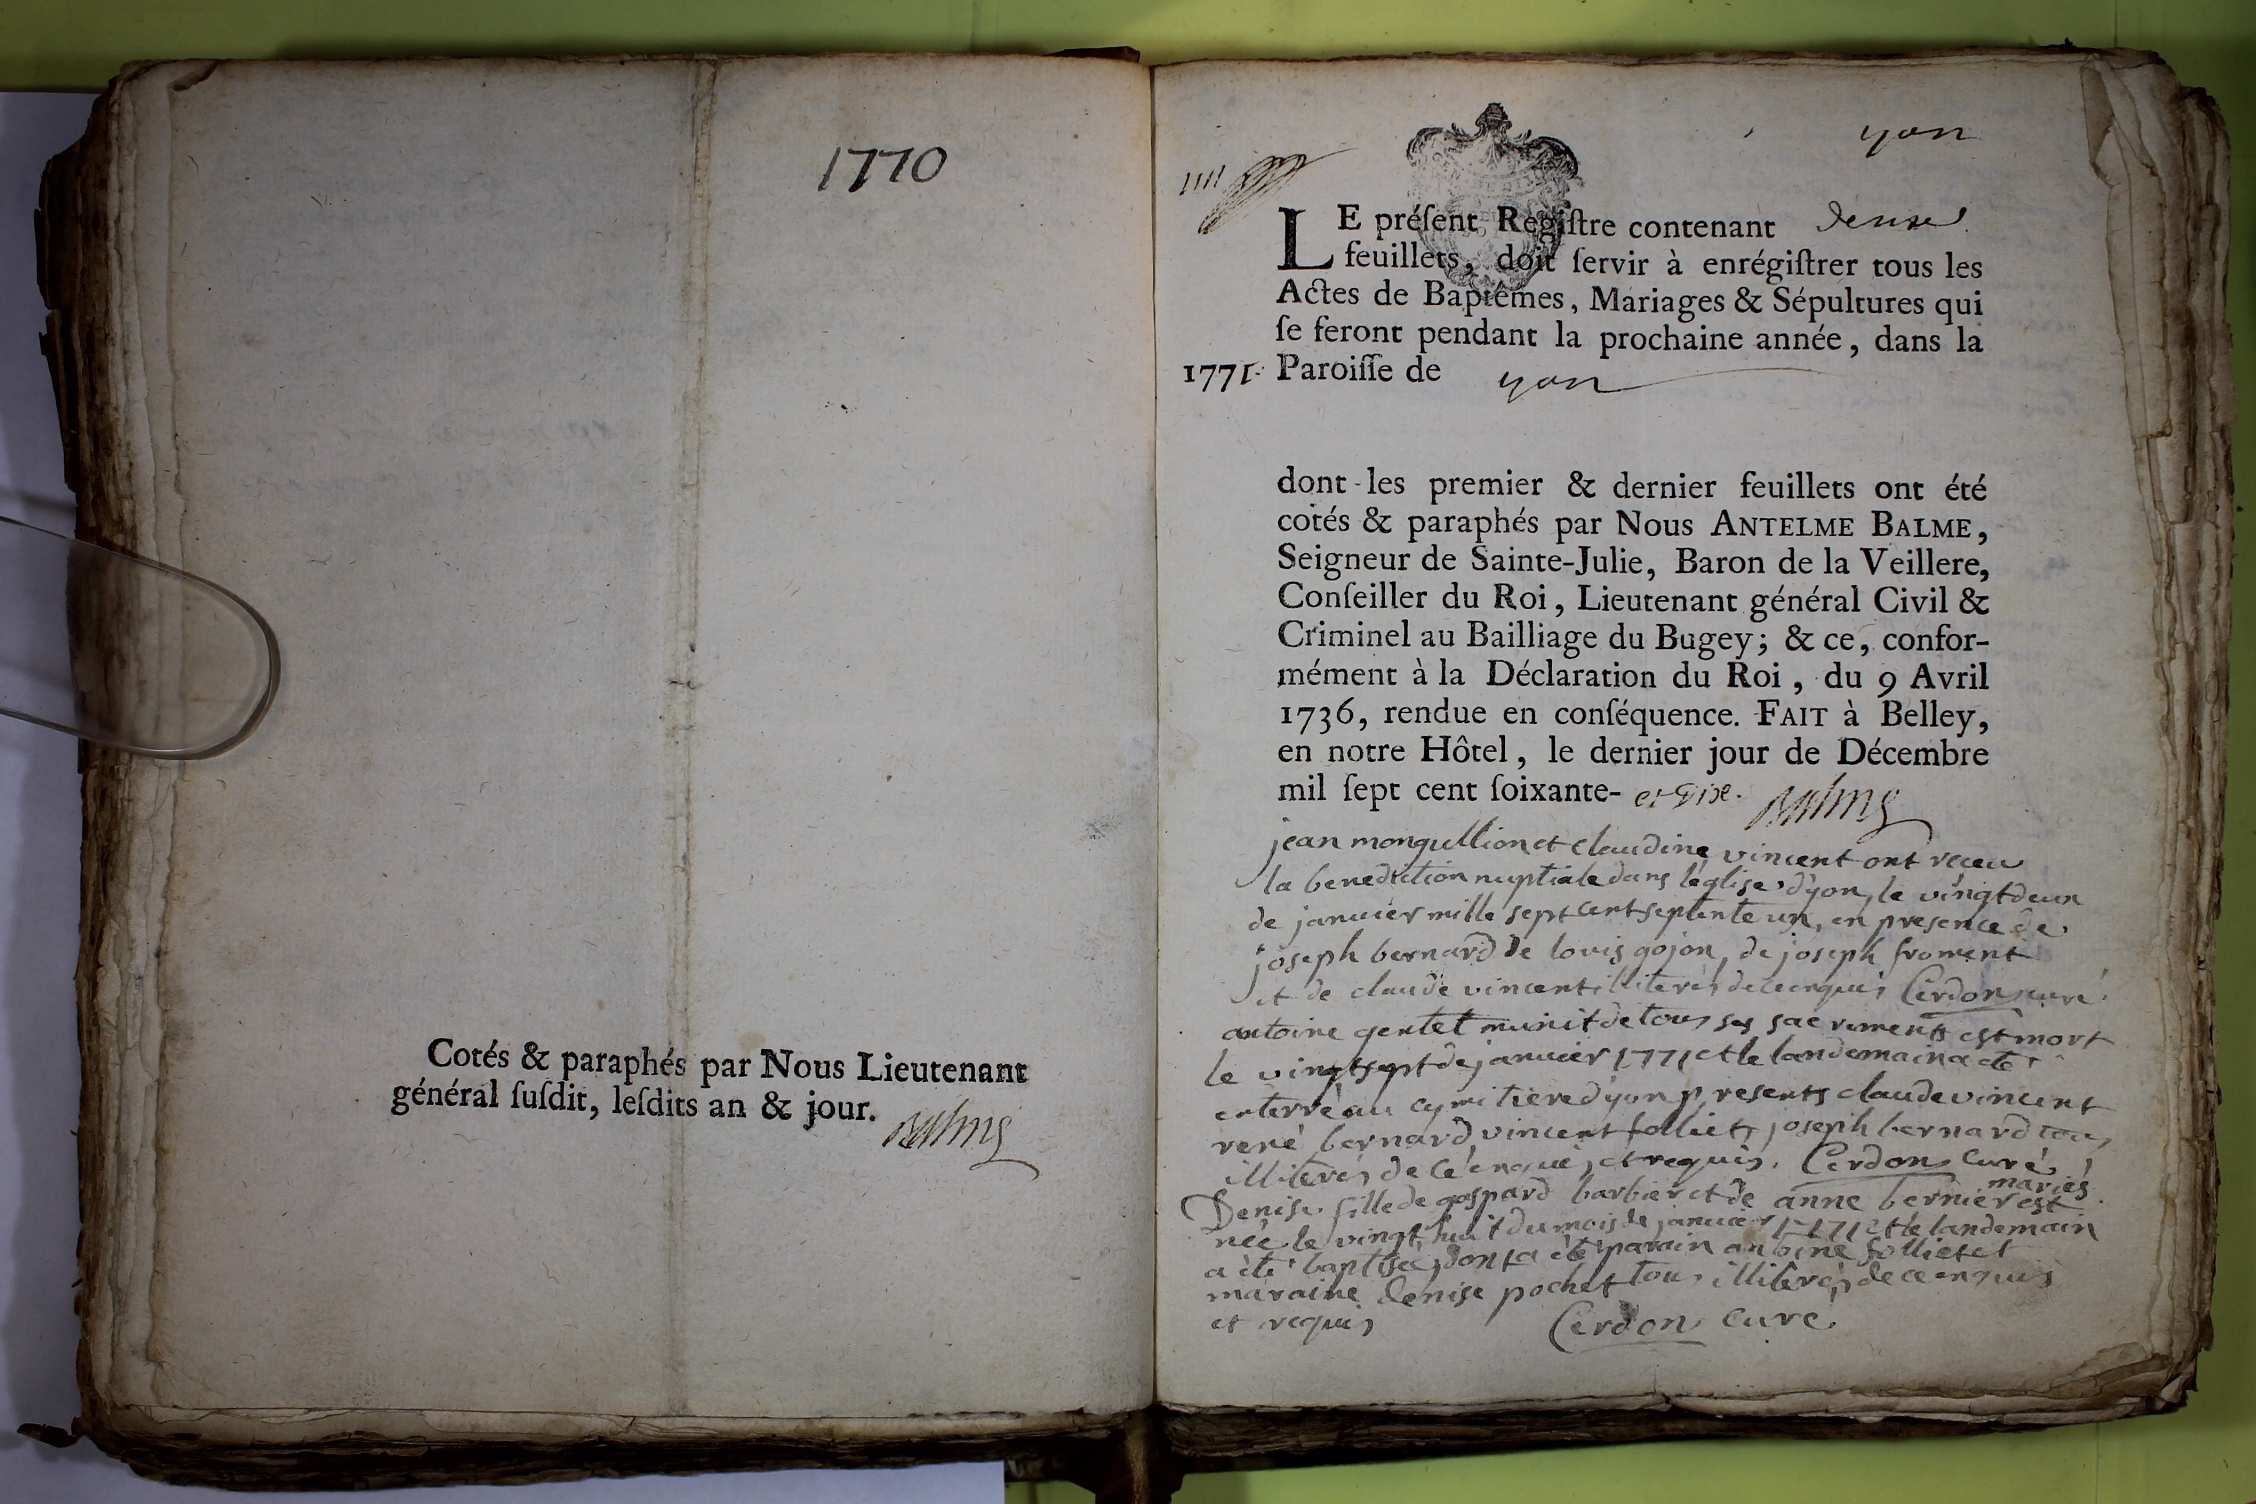 1770
Cotés & paraphés par Nous Lieutenant
général ſuſdit, leſdits an & jour.
Balme
yon
LE préſent Regiſtre contenant
feuillets, doit ſervir à enrégiſtrer tous les
Actes de Baptêmes, Mariages & Sépultures qui
ſe feront pendant la prochaine année, dans la
1771. Paroiſſe de yon
dont les premier & dernier feuillets ont été
cotés & paraphés par Nous ANTELME BALME,
Seigneur de Sainte-Julie, Baron de la Veillere,
Conſeiller du Roi, Lieutenant général Civil &
Criminel au Bailliage du Bugey; & ce, confor-
mément à la Déclaration du Roi, du 9 Avril
1736, rendue en conſéquence. FAIT à Belley,
en notre Hôtel, le dernier jour de Décembre
mil ſept cent ſoixante- et Dix. Balme
jean mongullion et claudine vincent ont receu
la benediction nuptiale dans l'église d'yon, le vingt deux
de janvier mille sept cent septente un, en presence de
joseph bernard de louis gojon, de joseph froment
et de claude vincent illiterés de ce enquis Cerdon curé
antoine gentet munit de tous ses sacrements est mort
le vingt sept de janvier 1771 et le landemain a eté
enterré au cymitière d'yon presents claude vincent
rené bernard vincent folliet joseph bernard tous
illiterés de ce enquis, et requis. Cerdon curé
mariés
Denise fille de gaspard barbier et de anne bernier est
née le vingt huit du mois de janvier 1771 et le landemain
a été baptisée, dont a été parain antoine folliet et
maraine denise pochet tous illiterés de ce enquis
et requis Cerdon curé